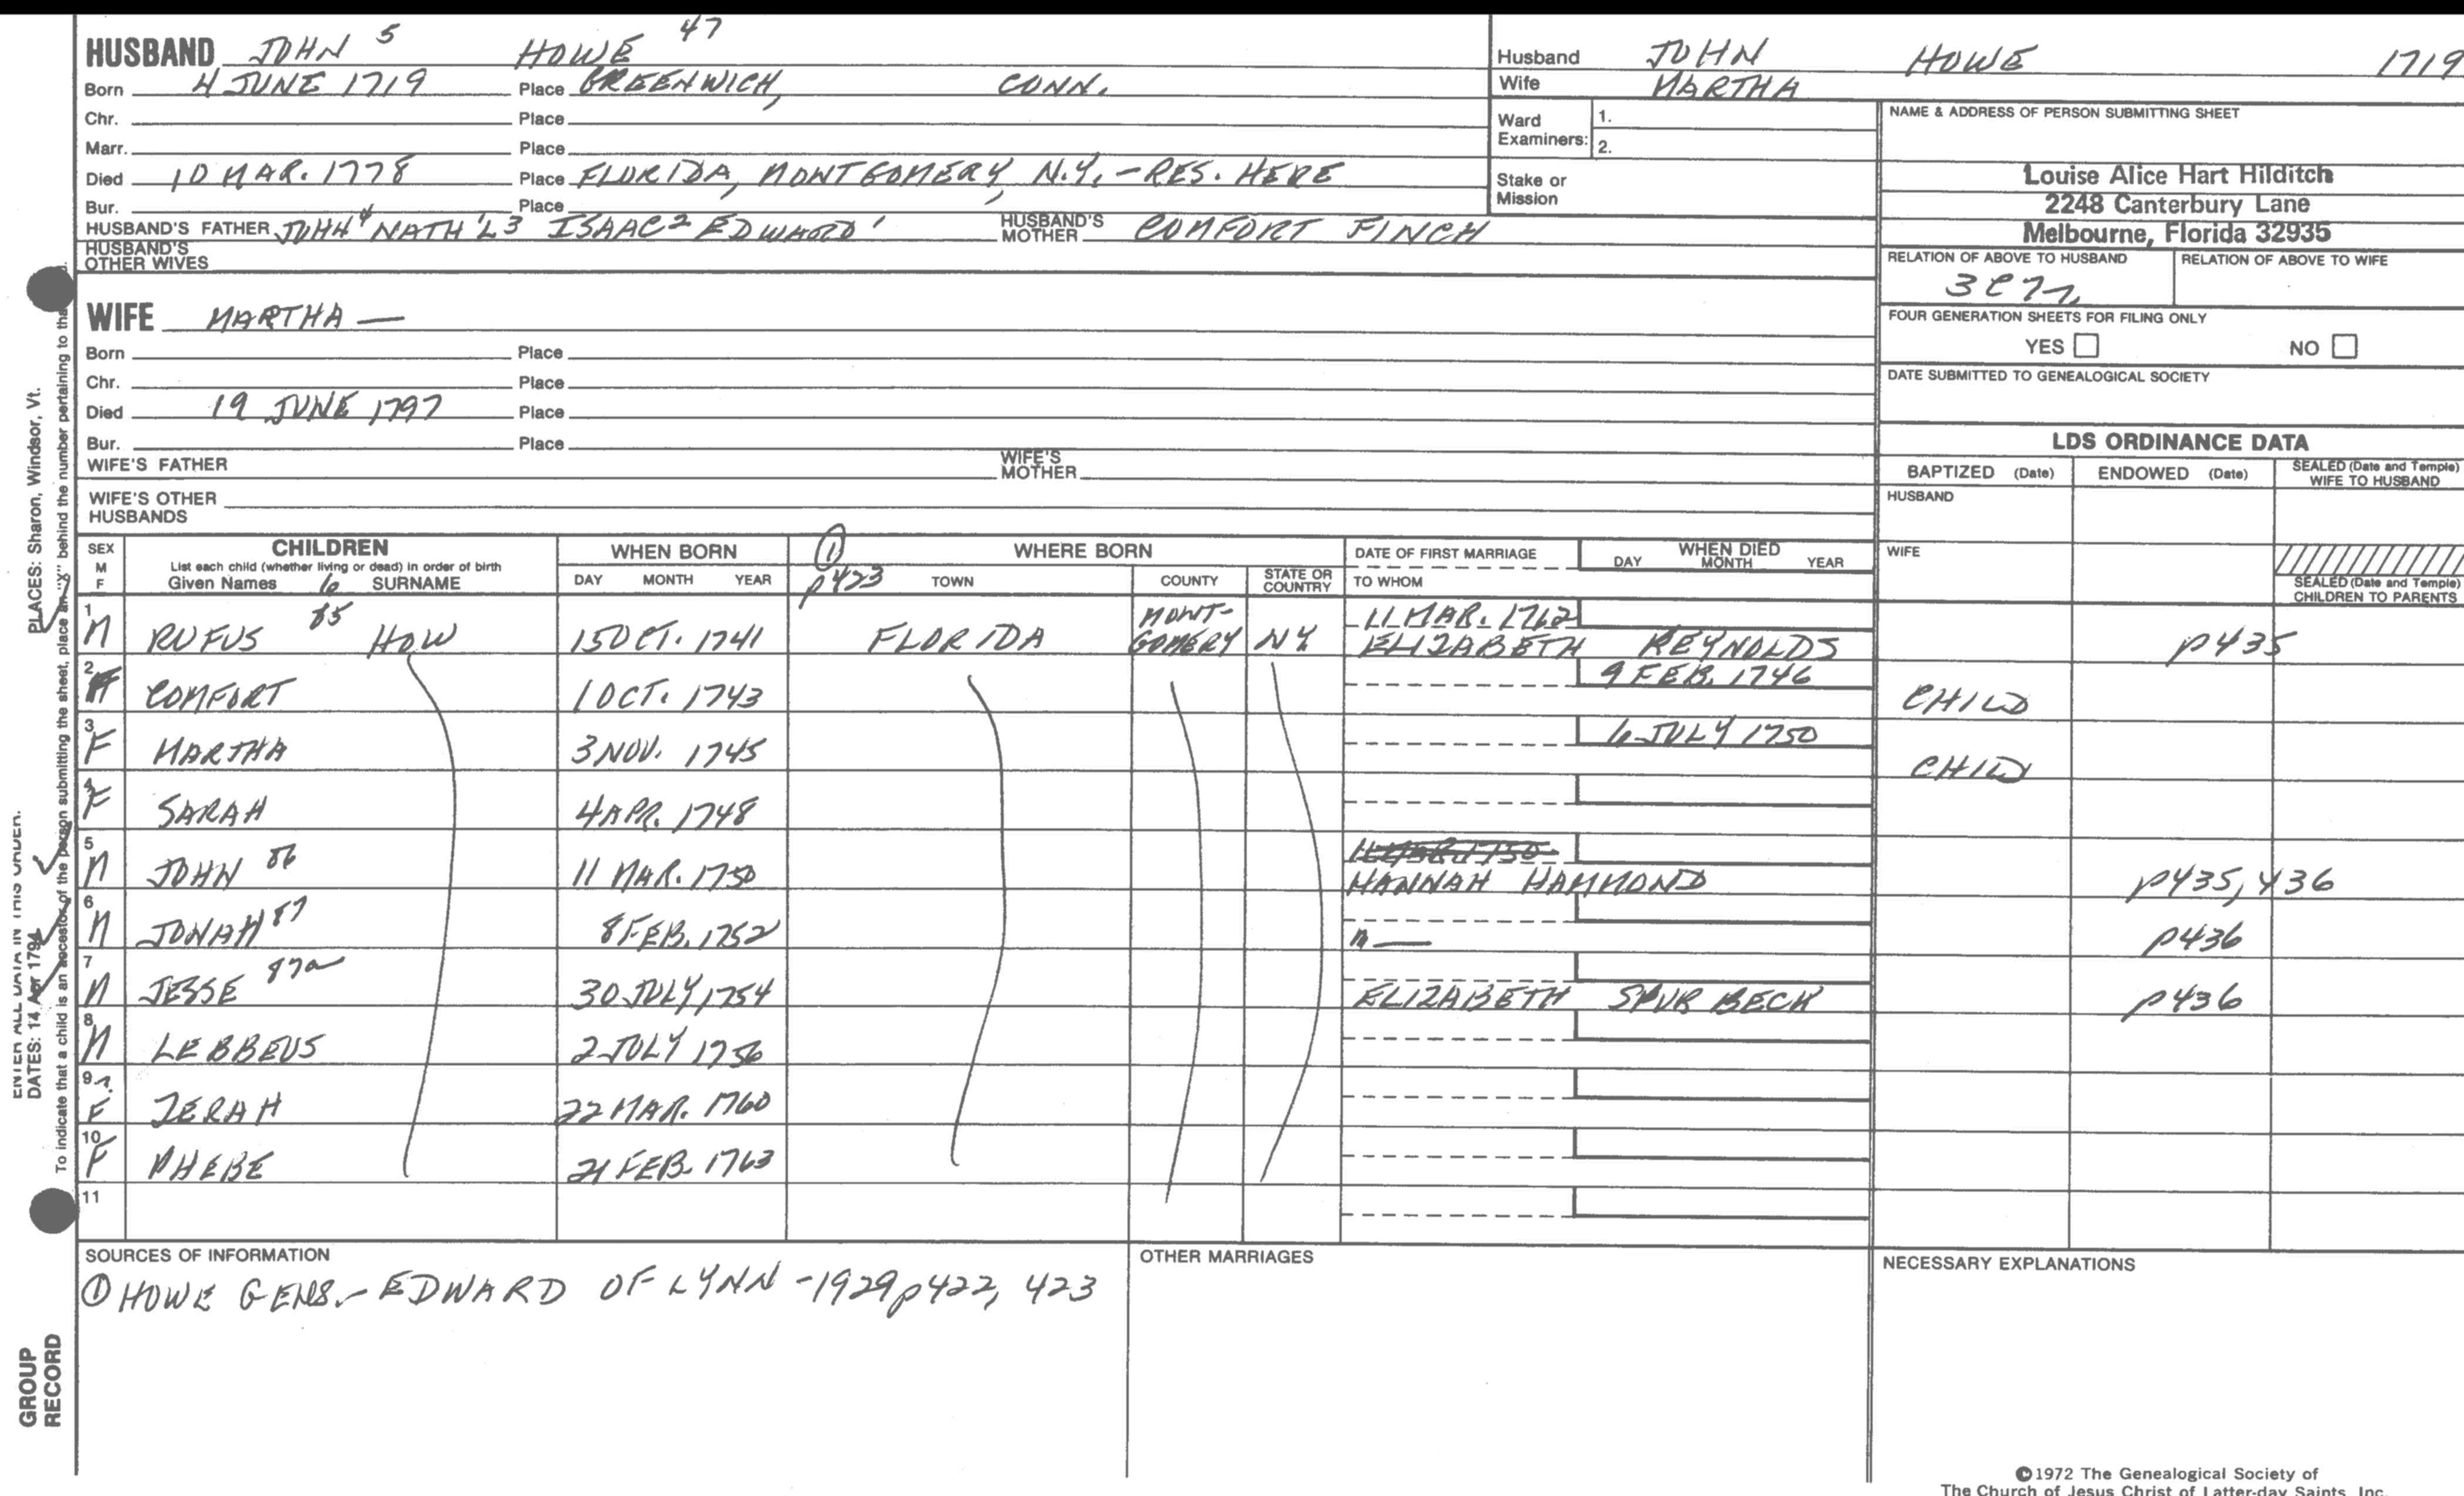 HUSBAND JOHN 5 HOWE 47
Born 4 JUNE 1719 Place GREENWICH, CONN.
Chr. Place
Marr. Place
Died 10 MAR. 1778 Place FLORIDA, MONTGOMERY, N.Y. - RES. HERE
Bur. Place
HUSBAND'S FATHER JOHN 4 NATH'L 3 ISAAC 2 EDWARD 1 HUSBAND'S MOTHER COMFORT FINCH
HUSBAND'S OTHER WIVES
WIFE MARTHA —
Born Place
Chr. Place
Died 19 JUNE 1797 Place
Bur. Place
WIFE'S FATHER WIFE'S MOTHER
WIFE'S OTHER HUSBANDS
Husband JOHN HOWE 1719
Wife MARTHA
Ward Examiners: 1. 2.
Stake or Mission
NAME & ADDRESS OF PERSON SUBMITTING SHEET
Louise Alice Hart Hilditch
2248 Canterbury Lane
Melbourne, Florida 32935
RELATION OF ABOVE TO HUSBAND RELATION OF ABOVE TO WIFE
FOUR GENERATION SHEETS FOR FILING ONLY
YES NO
DATE SUBMITTED TO GENEALOGICAL SOCIETY
LDS ORDINANCE DATA
BAPTIZED (Date) ENDOWED (Date) SEALED (Date and Temple) WIFE TO HUSBAND
HUSBAND
WIFE
SEALED (Date and Temple) CHILDREN TO PARENTS
SEX M F CHILDREN WHEN BORN ① p423 WHERE BORN DATE OF FIRST MARRIAGE WHEN DIED
List each child (whether living or dead) in order of birth
Given Names 6 SURNAME DAY MONTH YEAR TOWN COUNTY STATE OR COUNTRY TO WHOM DAY MONTH YEAR
1 M RUFUS 85 HOW 15 OCT. 1741 FLORIDA MONT-GOMERY NY 11 MAR. 1762 ELIZABETH REYNOLDS p435
2 F COMFORT 1 OCT. 1743 9 FEB. 1746 CHILD
3 F MARTHA 3 NOV. 1745 6 JULY 1750 CHILD
4 F SARAH 4 APR. 1748
5 M JOHN 86 11 MAR. 1750 HANNAH HAMMOND p435, 436
6 M JONAH 87 8 FEB. 1752 m — p436
7 M JESSE 87a 30 JULY, 1754 ELIZABETH SPUR BECK p436
8 M LEBBEUS 2 JULY 1756
9 F ZERAH 22 MAR. 1760
10 F PHEBE 21 FEB. 1763
11
SOURCES OF INFORMATION
① HOWE GENS. - EDWARD OF LYNN - 1929 p422, 423
OTHER MARRIAGES
NECESSARY EXPLANATIONS
©1972 The Genealogical Society of
The Church of Jesus Christ of Latter-day Saints, Inc.
PLACES: Sharon, Windsor, Vt.
ENTER ALL DATA IN THIS ORDER:
DATES: 14 Apr 1794
To indicate that a child is an ancestor of the person submitting the sheet, place an "X" behind the number pertaining to
GROUP RECORD